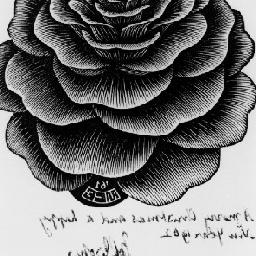 A merry Christmas and a happy
New Year 1902